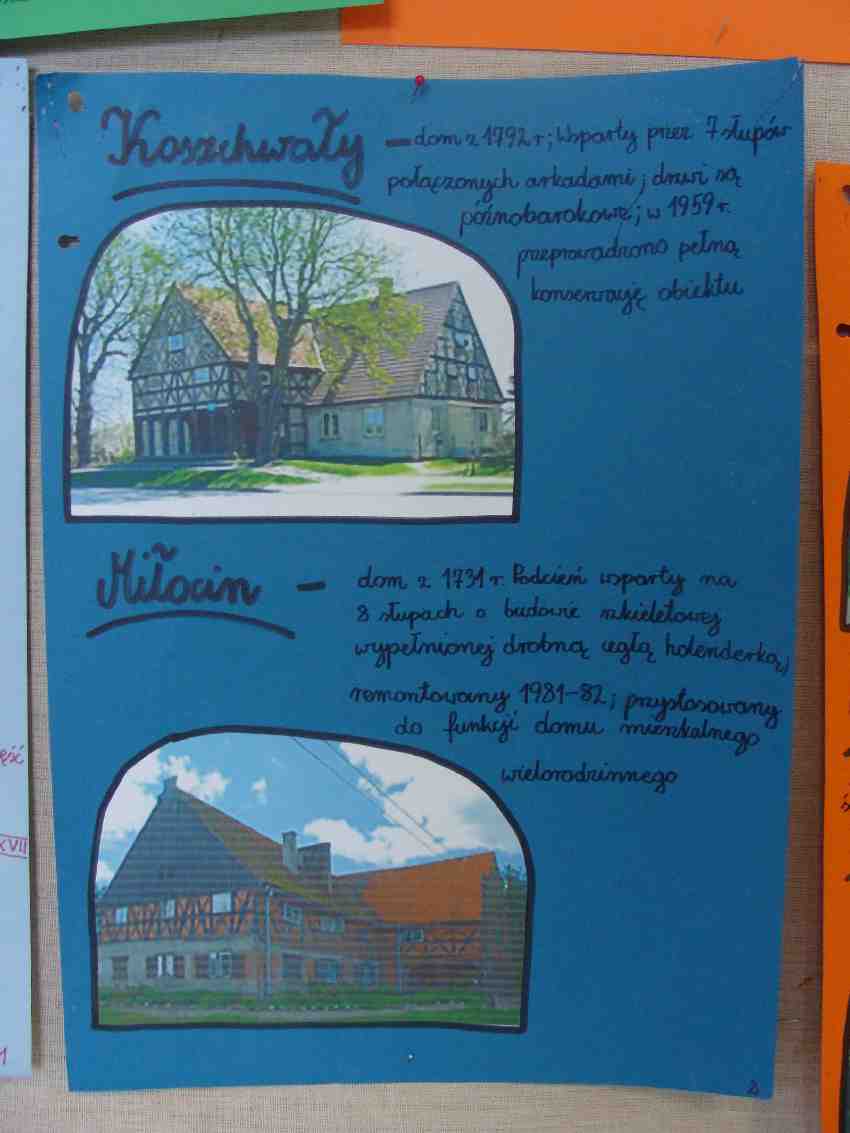 Koszchwały
– dom z 1792 r; wsparty przez 7 słupów
połączonych arkadami; drzwi są
późnobarokowe; w 1959 r.
przeprowadzono pełną
konserwację obiektu
Miłocin – dom z 1731 r. Podcień wsparty na
8 słupach o budowie szkieletowej
wypełnionej drobną cegłą holenderką;
remontowany 1981-82; przystosowany
do funkcji domu mieszkalnego
wielorodzinnego
ęść
XVII